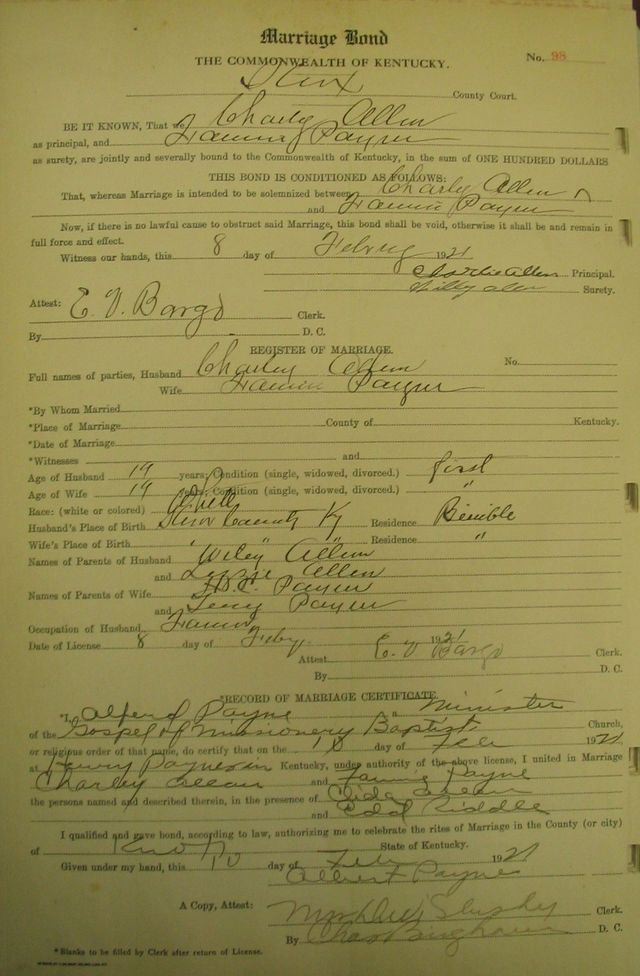 Marriage Bond
THE COMMONWEALTH OF KENTUCKY.
No. 98
Knox County Court.
BE IT KNOWN, That we Charly Allen
as principal, and Fannie Payne
as surety, are jointly and severally bound to the Commonwealth of Kentucky, in the sum of ONE HUNDRED DOLLARS
THIS BOND IS CONDITIONED AS FOLLOWS:
That, whereas Marriage is intended to be solemnized between Charly Allen
and Fannie Payne
Now, if there is no lawful cause to obstruct said Marriage, this bond shall be void, otherwise it shall be and remain in
full force and effect.
Witness our hands, this 8 day of 1921
Charlie Allen Principal.
Allen Surety.
Attest: E. V. Bargo Clerk.
By D. C.
REGISTER OF MARRIAGE.
Full names of parties, Husband Charley Allen No.
Wife Fannie Payne
*By Whom Married
*Place of Marriage County of Kentucky.
*Date of Marriage
*Witnesses and
Age of Husband 19 years; Condition (single, widowed, divorced.) first
Age of Wife 19 years; Condition (single, widowed, divorced.) "
Race: (white or colored) White
Husband's Place of Birth Knox County Ky Residence Bimble
Wife's Place of Birth " " Residence "
Names of Parents of Husband Wiley Allen
and Allen
Names of Parents of Wife Payne
and Payne
Occupation of Husband
Date of License 8 day of Feby. 1921
Attest E. V. Bargo Clerk.
By D. C.
*RECORD OF MARRIAGE CERTIFICATE.
*I, Payne a Minister
of the Gospel of Missionery Baptist Church,
or religious order of that name, do certify that on the 10 day of Feb 1921
at Henry Paynes in Kentucky, under authority of the above license, I united in Marriage
Charley Allen and Fannie Payne
the persons named and described therein, in the presence of
and Riddle
I qualified and gave bond, according to law, authorizing me to celebrate the rites of Marriage in the County (or city)
of Knox State of Kentucky.
Given under my hand, this 10 day of Feb 1921
Albert Payne
A Copy, Attest: Clerk.
By Chas Bingham D. C.
*Blanks to be filled by Clerk after return of License.